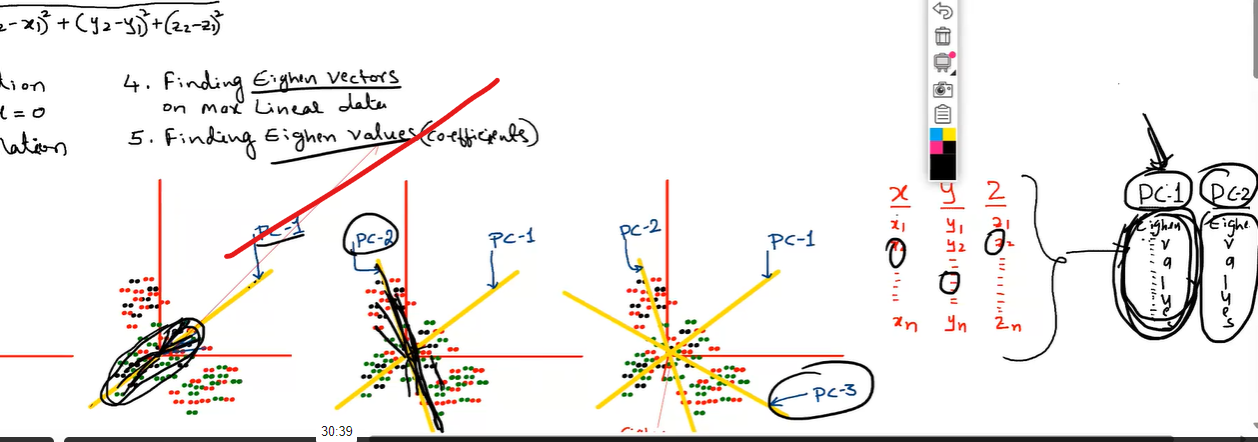 2-x1)² + (y2-y1)² + (z2-z1)²
tion
x = 0
lation
4. Finding Eighen vectors
on max Lineal data
5. Finding Eighen values (coefficients)
PC-1
PC-2
PC-1
PC-2
PC-1
PC-3
x y z
x1 y1 z1
x2 y2 z2
xn yn zn
PC-1 PC-2
Eighen
v
a
l
y
e
s
Eighe
v
a
l
y
e
s
30:39